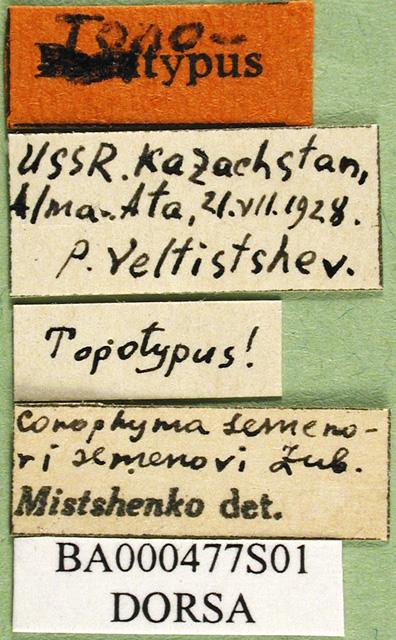 Topo-
typus
USSR. Kazachstan,
Alma-Ata, 21.VII.1928.
P. Veltistshev.
Topotypus!
Conophyma semeno-
vi semenovi Zub.
Mistshenko det.
BA000477S01
DORSA